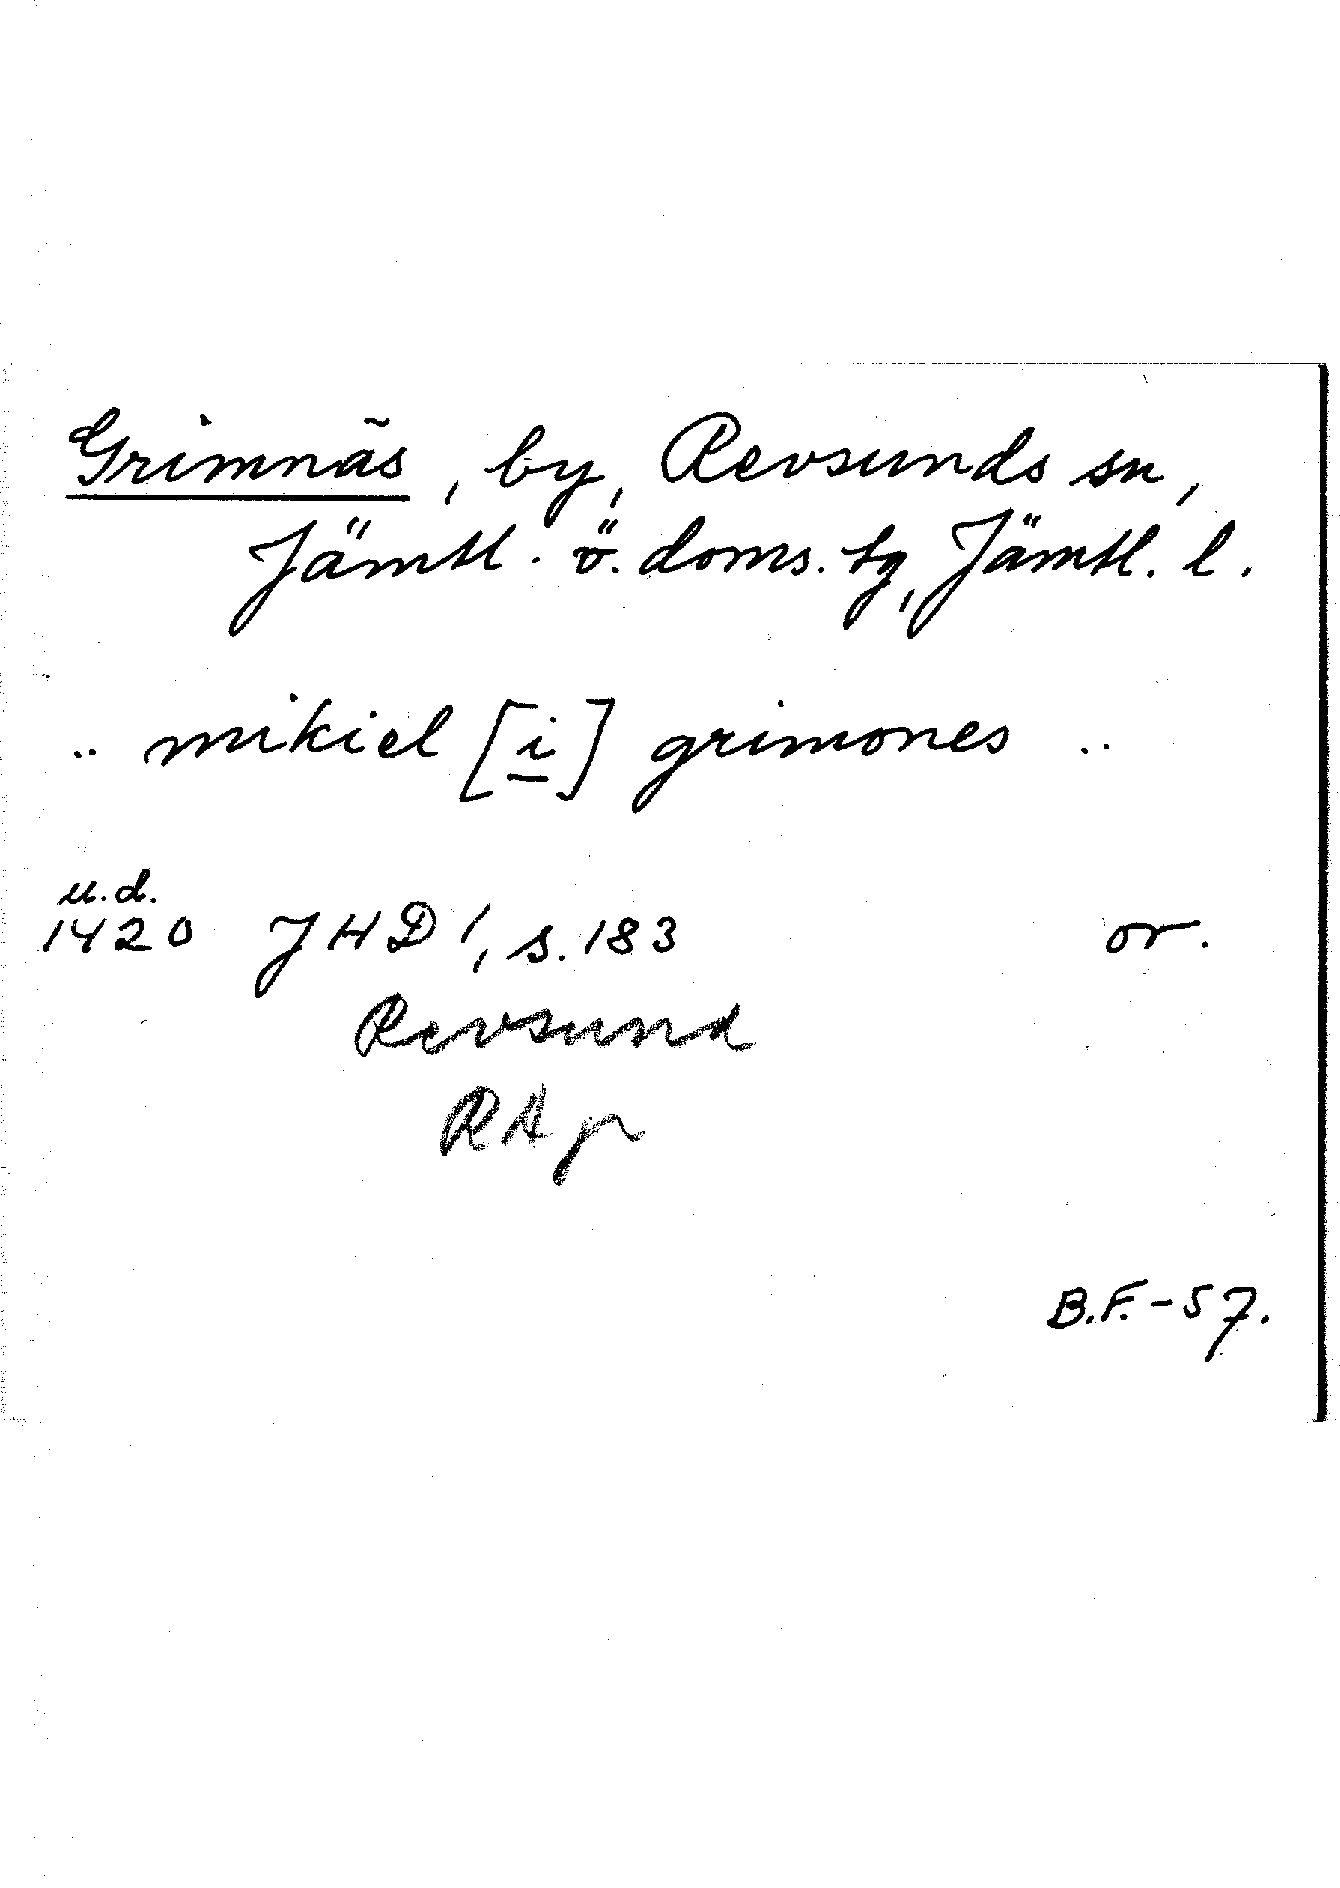 Grimnäs, by, Revsunds sn,
Jämtl. ö. doms. tg, Jämtl. l.
.. mikiel [i] grimones ..
u.d.
1420 JHD 1, s. 183 or.
Revsund
RA p
B.F. - 57.